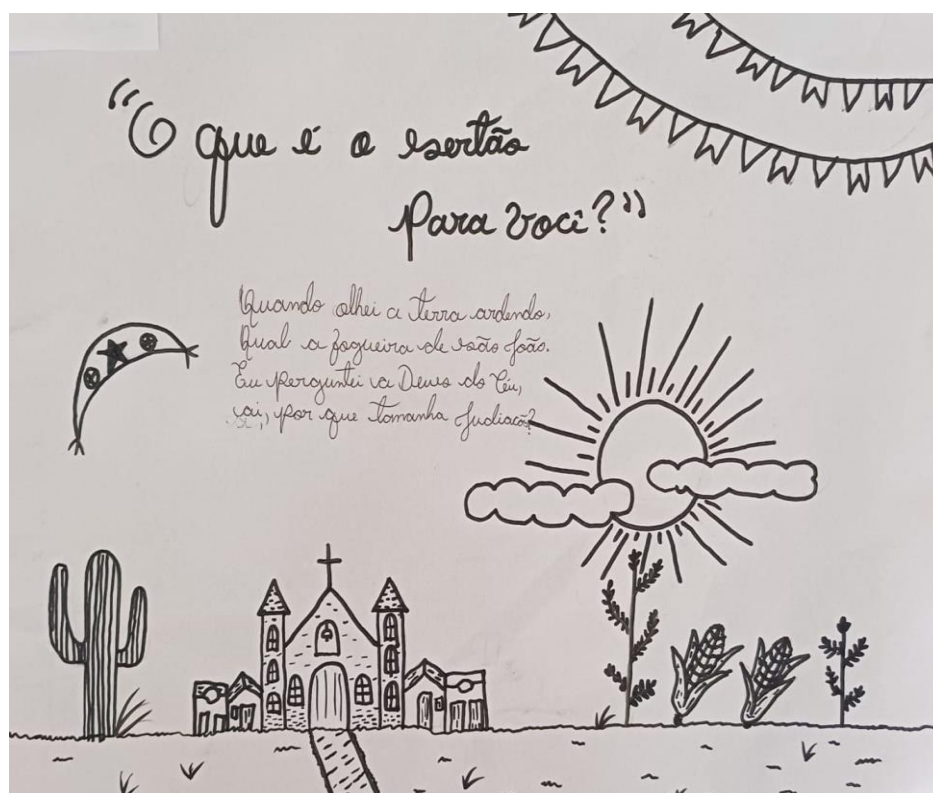 "O que é o sertão
para você?"
Quando olhei a terra ardendo,
Qual a fogueira de são João.
Eu perguntei a Deus do Céu,
ai, por que tamanha Judiacão?